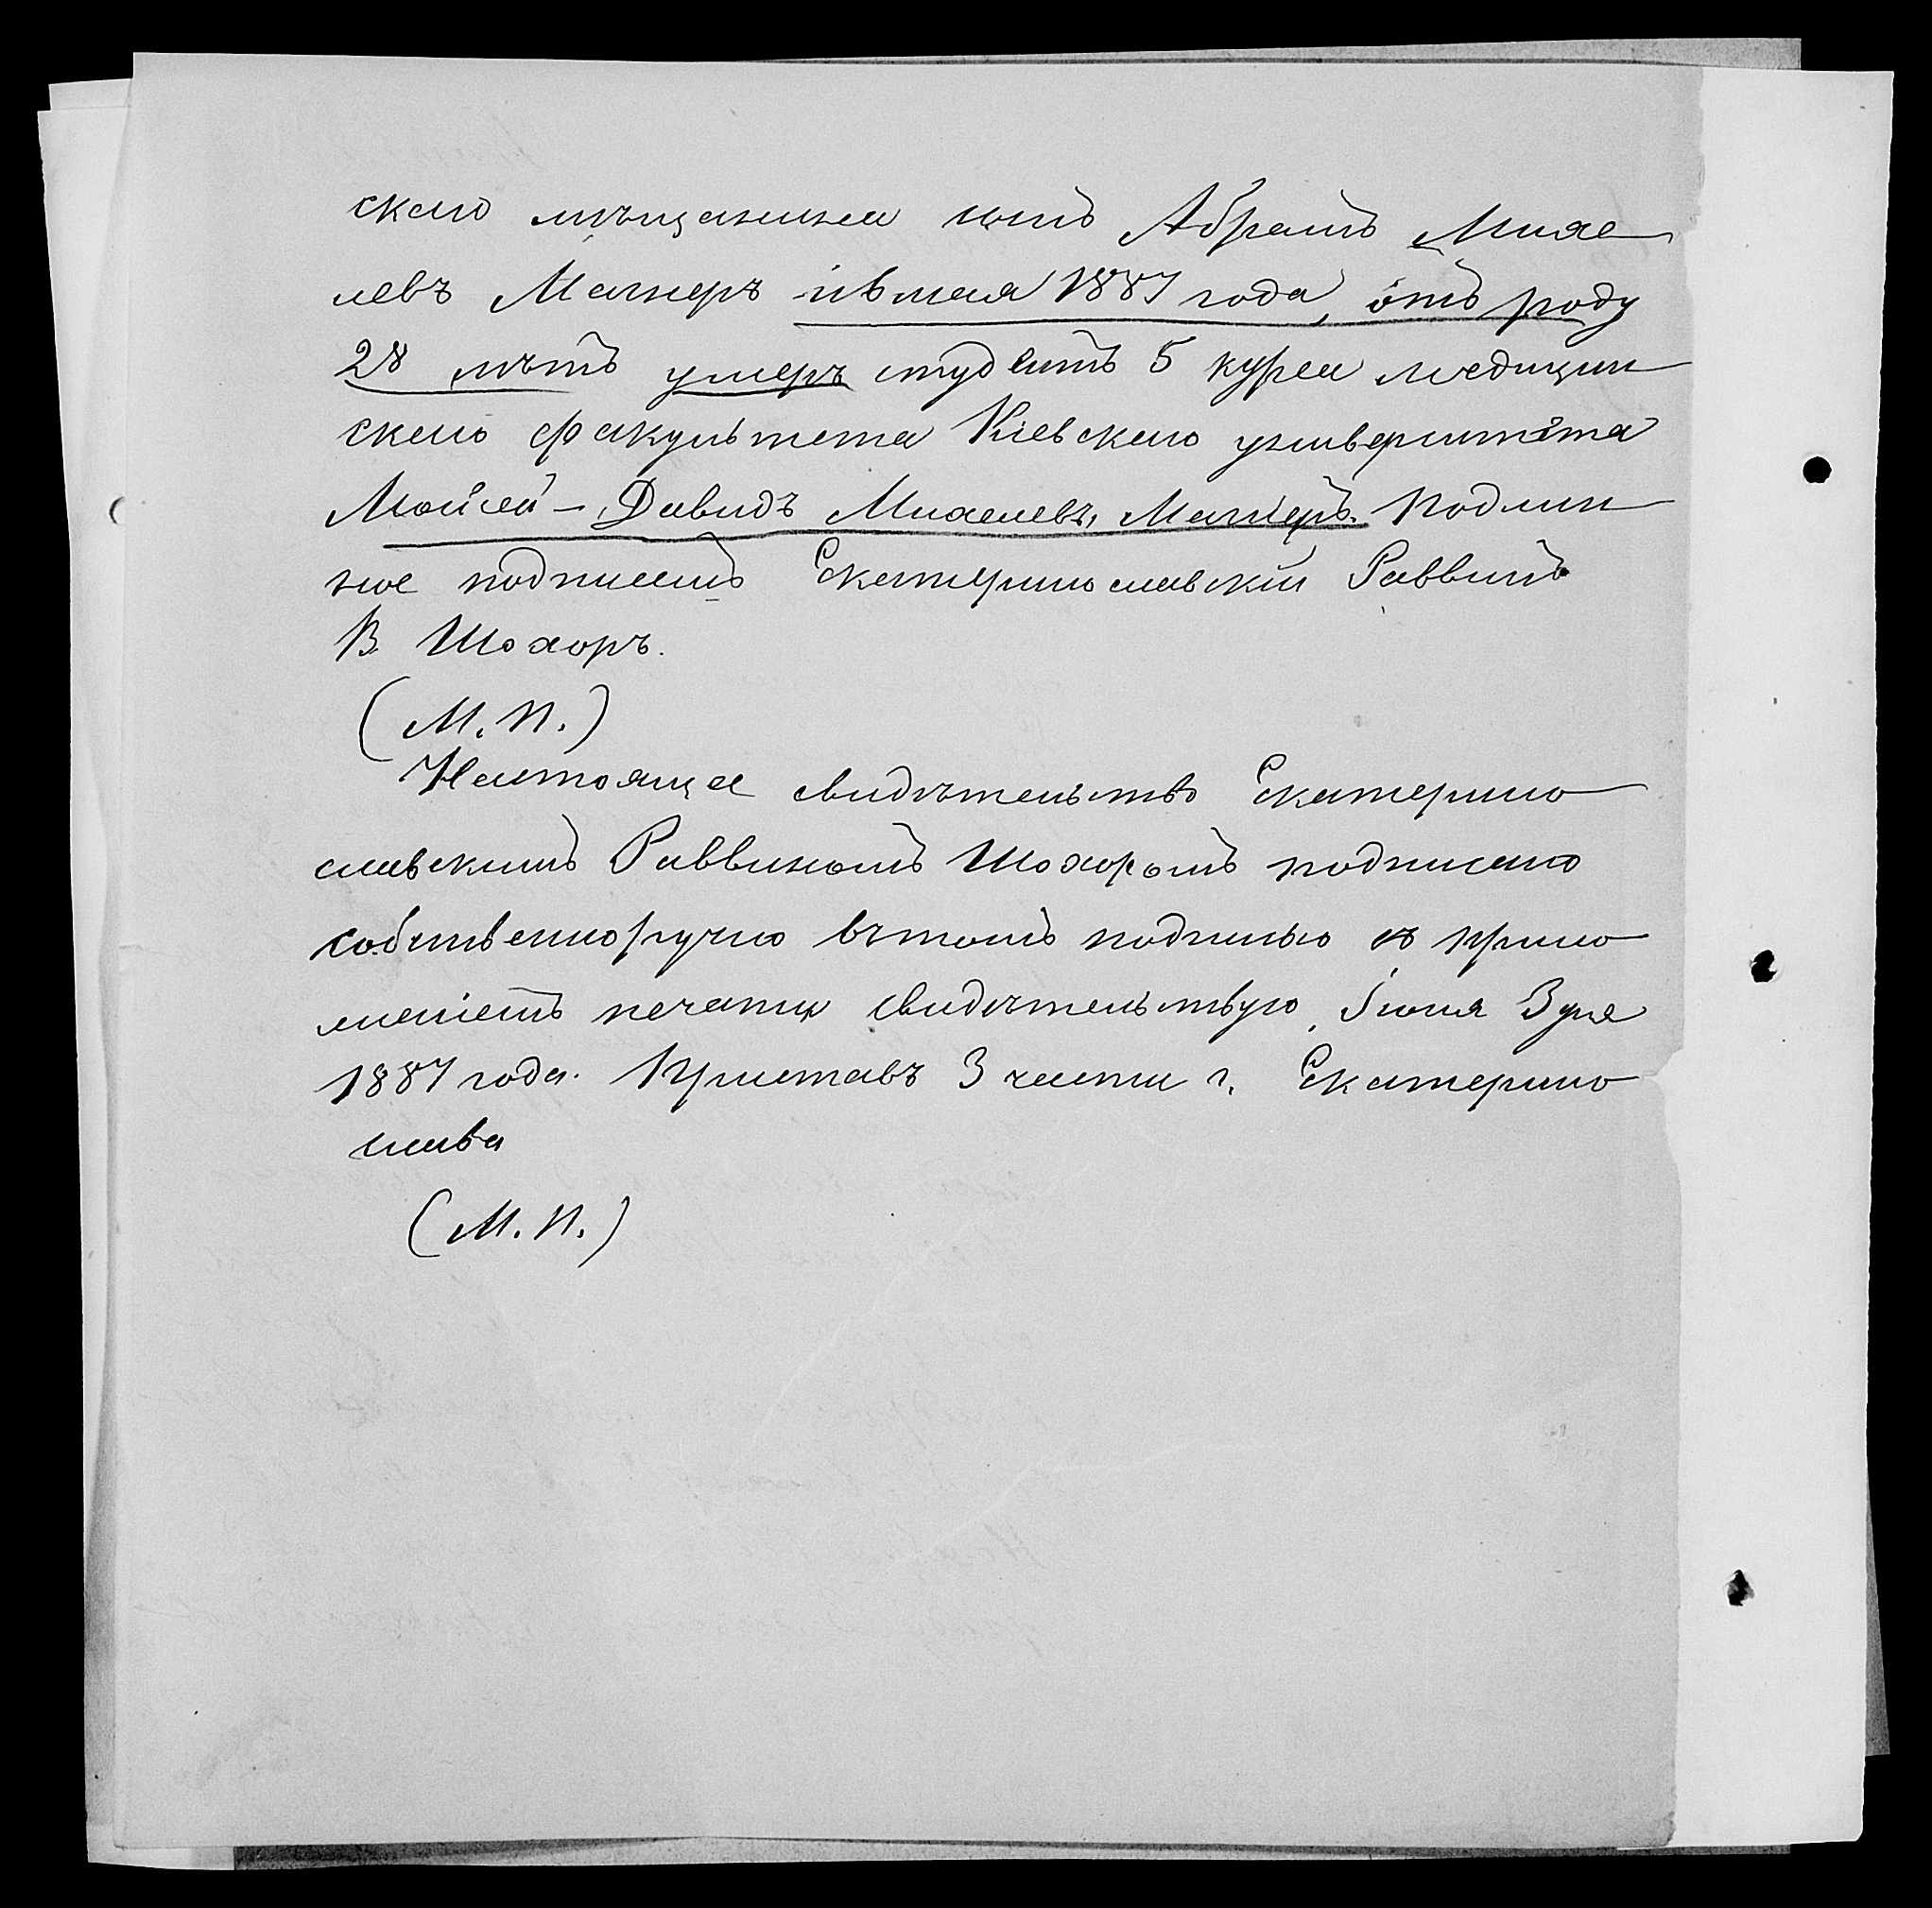 скаго мѣщанина сынъ Абрамъ Михе
левъ Магнеръ мая 1887 года, отъ роду
28 лѣтъ умеръ студентъ 5 курса медицин
скаго факультета Кіевскаго университета
Мойсей - Давидъ Михелевъ Магнеръ. Подлин
ное подписалъ Екатеринославскій Раввинъ
В. Шохоръ.
(М. П.)
Настоящее свидѣтельство Екатерино
славскимъ Раввиномъ Шохоромъ подписано
собственноручно въ томъ подписью съ прило
женіемъ печати свидѣтельствую, Іюня 3 дня
1887 года. Приставъ 3 части г. Екатерино
слава
(М. П.)